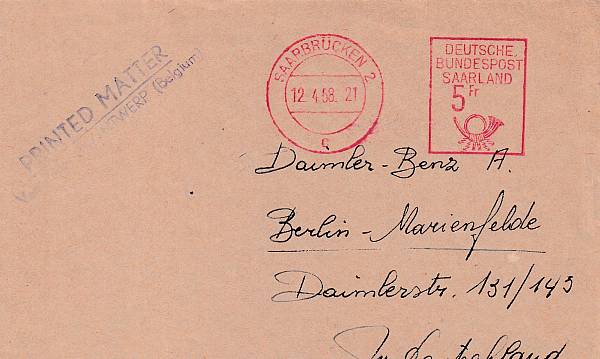 PRINTED MATTER
ANTWERP (Belgium)
SAARBRÜCKEN 2
12.4.58.21
c
DEUTSCHE
BUNDESPOST
SAARLAND
5 Fr
Daimler-Benz A.
Berlin-Marienfelde
Daimlerstr. 131/145